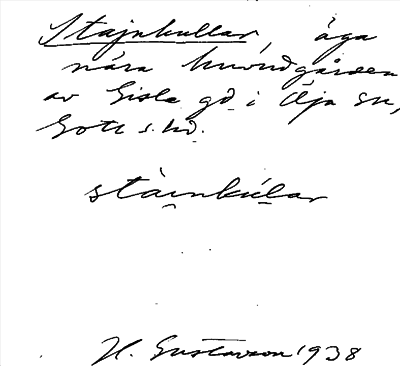 Stajnkullar, äga
nära huvudgården
av Gisle gd i Öja sn,
Gotl s. hd.
stàinkúlar
H. Gustavson 1938